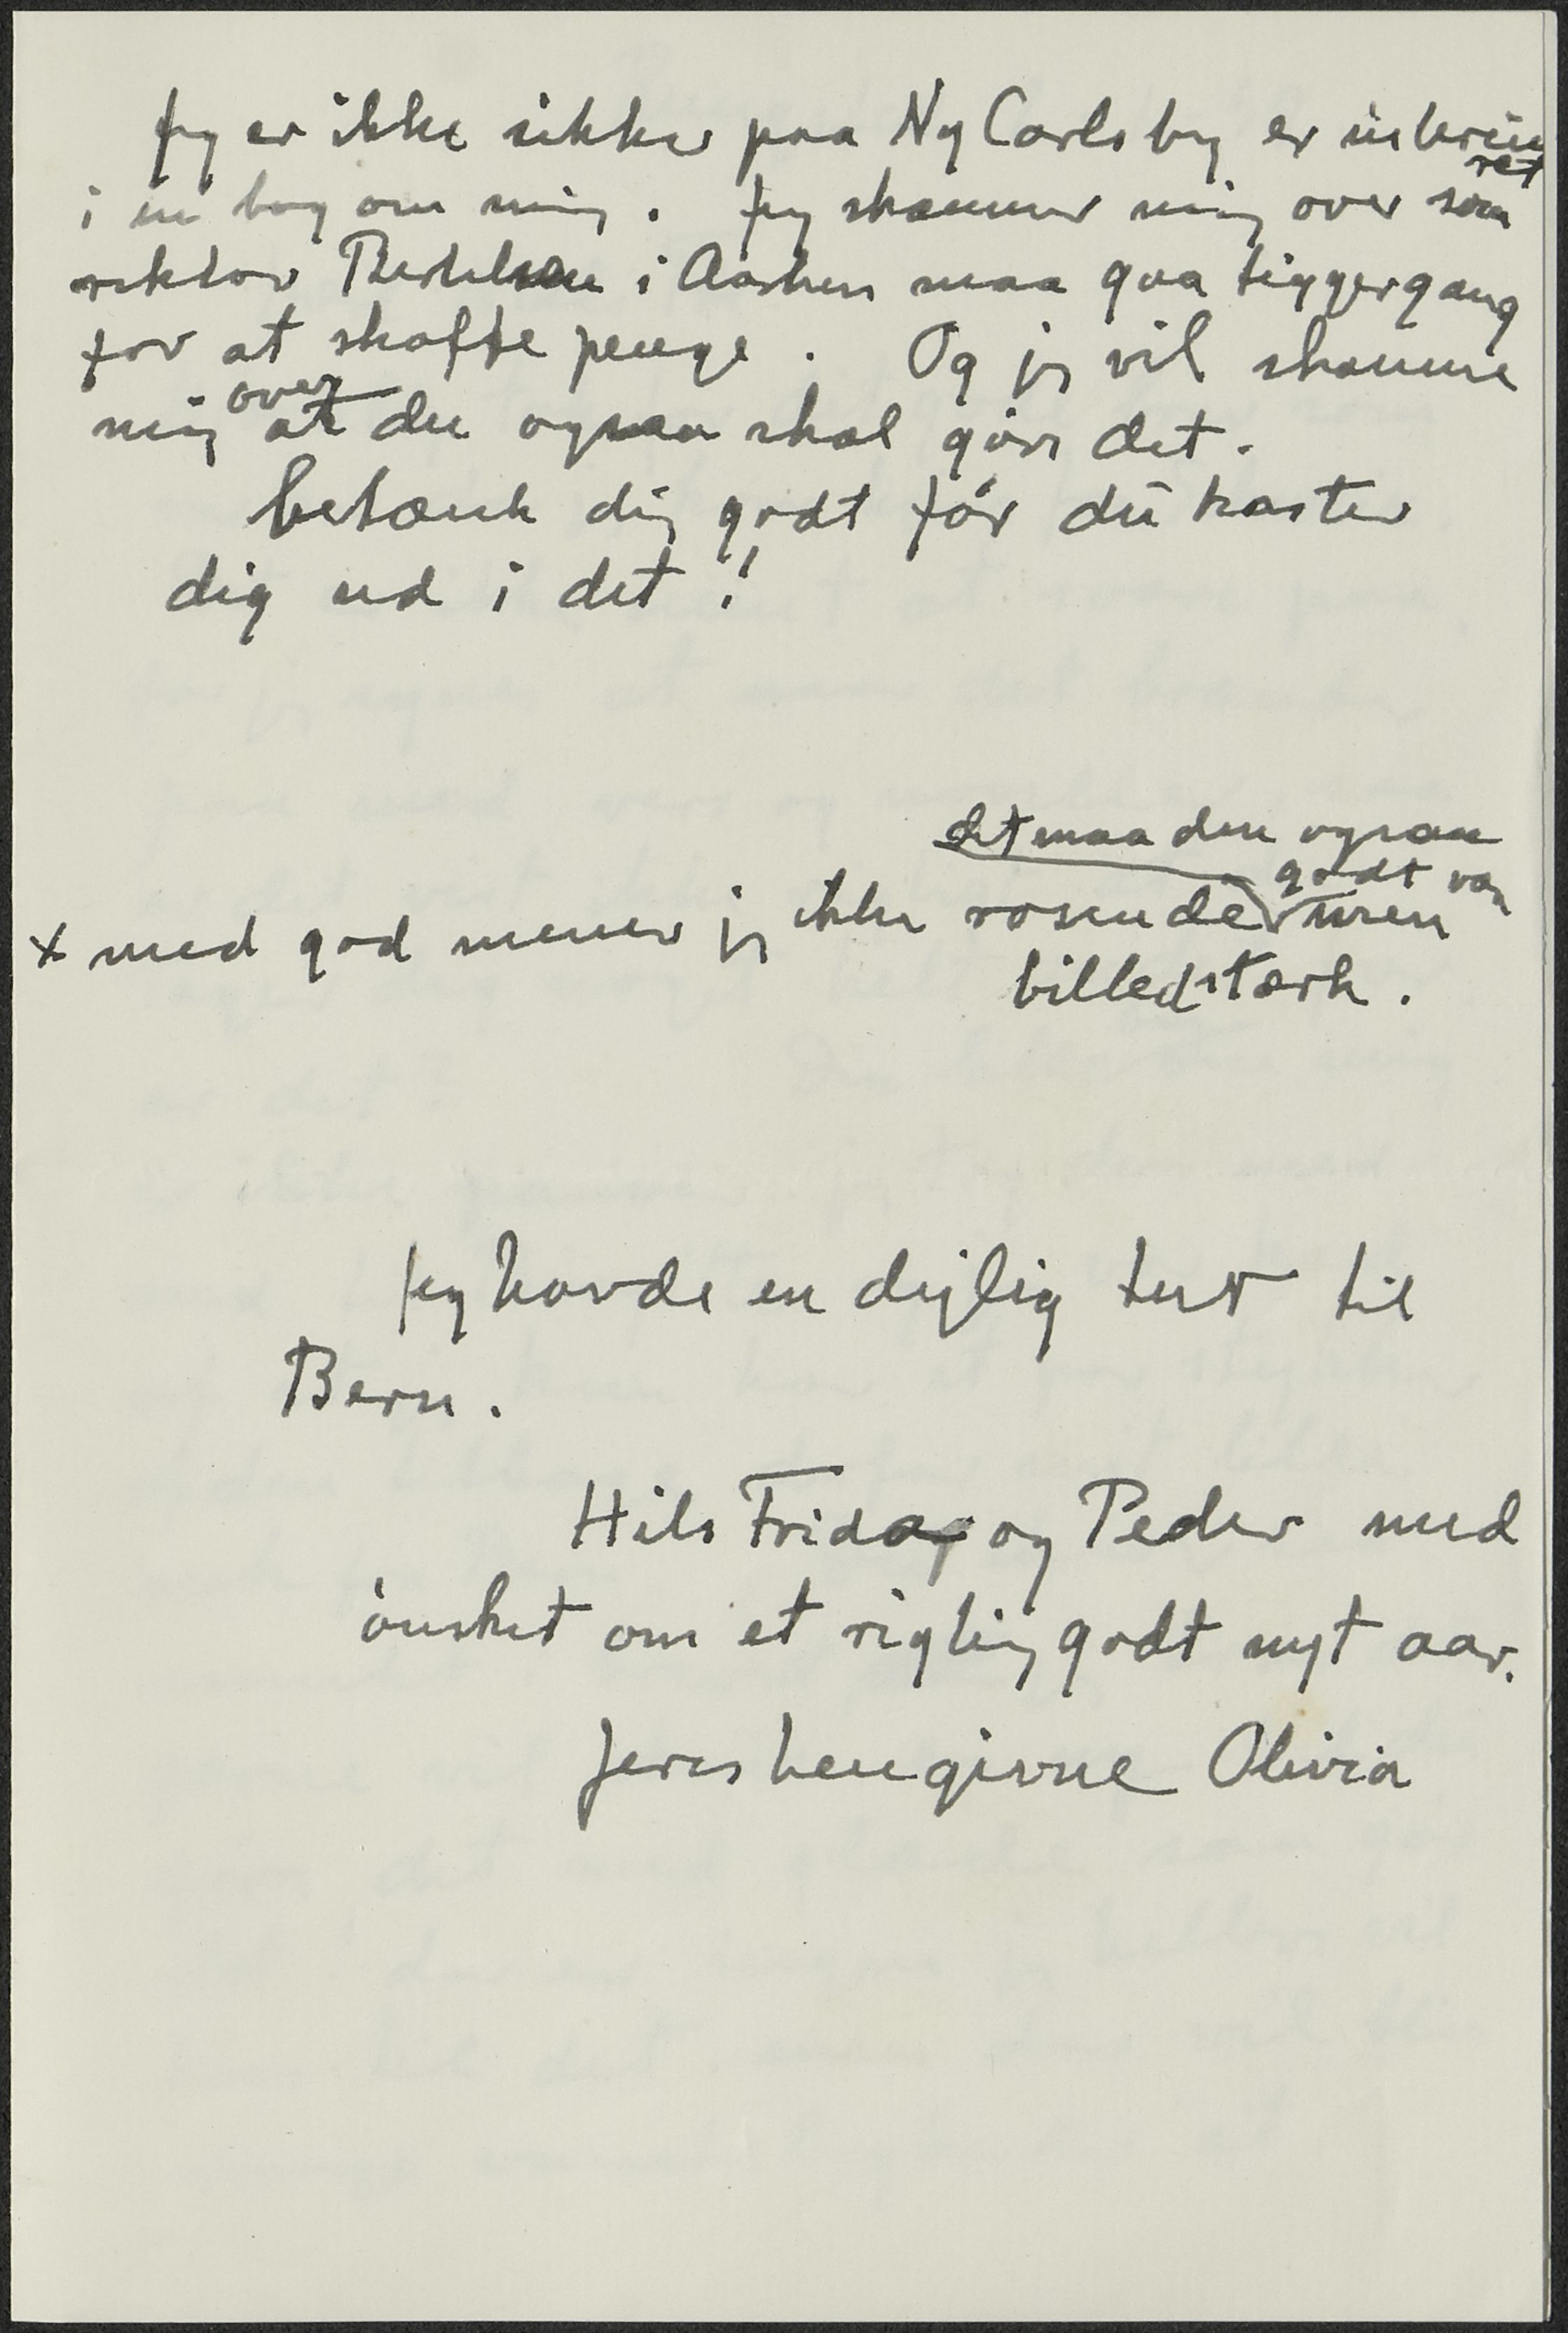 Jeg er ikke sikker paa Ny Carlsberg er interes
ret
i en bog om mig. Jeg skammer mig over som
rektor Bertelsen i Aarhus maa gaa tiggergang
for at skaffe penge. Og jeg vil skamme
mig over at du ogsaa skal gøre det.
betænk dig godt før du kaster
dig ud i det!
det maa den ogsaa
godt være
x med god mener jeg ikke rosende men
billedstærk.
Jeg havde en dejlig tur til
Bern.
Hils Frida og Peder med
ønsket om et rigtig godt nyt aar.
Jeres hengivne Olivia